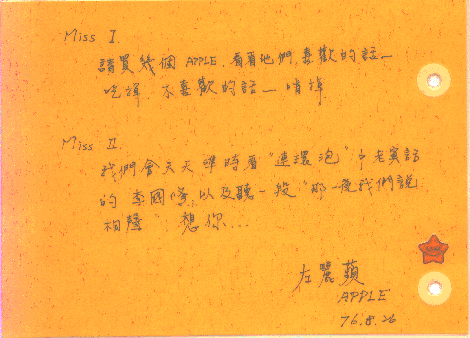 Miss I.
請買幾個 APPLE. 看看他們, 喜歡的話—
吃掉, 不喜歡的話— 啃掉
Miss II.
我們會天天準時看"連環泡"中老實話
的 李國修, 以及聽一段"那一夜我們說
相聲" 想你...
左麗蘋
APPLE
76.8.26